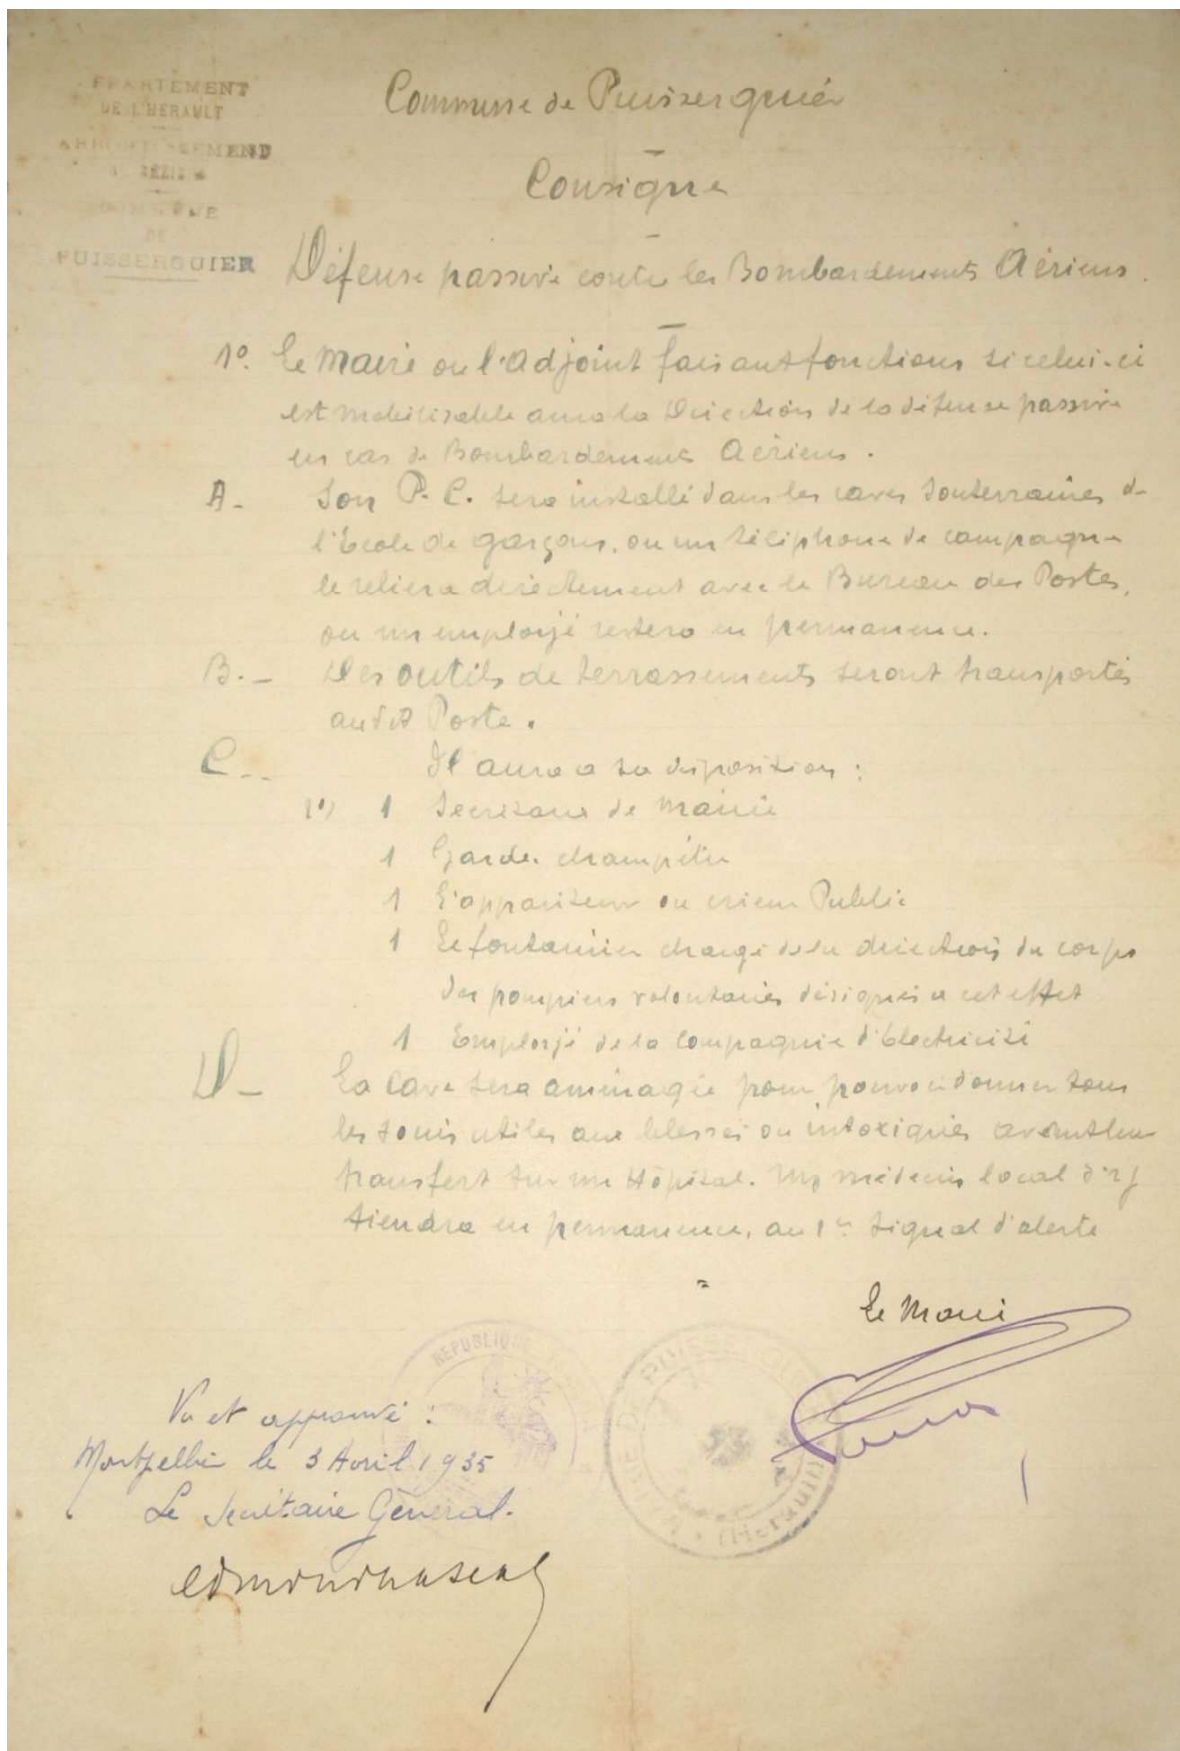 DÉPARTEMENT
DE L'HERAULT
ARRONDISSEMEND
BÉZIE
COMMUNE
DE
PUISSERGUIER
Commune de Puisserguier
Consigne
Défense passive contre les Bombardements Aériens.
1º. Le Maire ou l'Adjoint faisant fonctions si celui-ci
est mobilisable aura la Direction de la défense passive
en cas de Bombardements Aériens.
A- Son P.C. sera installé dans les caves souterraines de
l'Ecole de garçons, ou un téléphone de campagne
le reliera directement avec le Bureau des Postes,
ou un employé restera en permanence.
B.- Des outils de terrassements seront transportés
audit Poste.
C.. Il aura a sa disposition :
1º) 1 Secrétaire de Mairie
1 Garde champêtre
1 L'appariteur ou crieur Public
1 Le fontainier chargé de la direction du corps
des pompiers volontaires désignés a cet effet
1 Employé de la Compagnie d'Electricité
D- La Cave sera aménagée pour pouvoir donner tous
les soins utiles aux blessés ou intoxiqués avant leur
transfert sur un Hôpital. Un médecin local s'y
tiendra en permanence, au 1er signal d'alerte
Le Maire
REPUBLIQUE
MAIRIE DE PUISSERGUIER (Hérault)
Vu et approuvé :
Montpellier le 3 Avril 1935
Le Secrétaire Général.